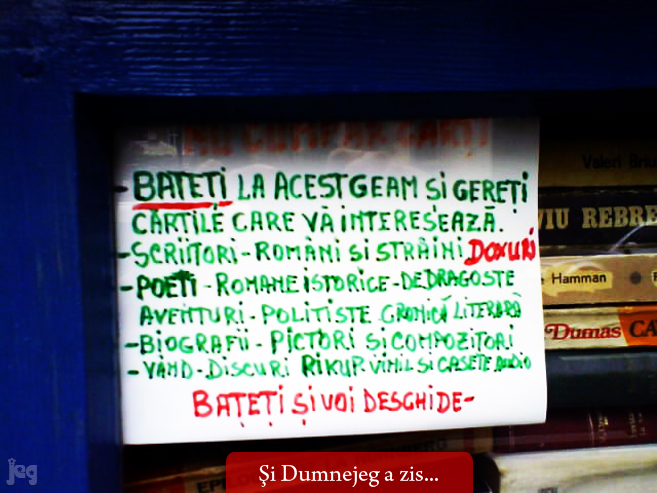 NU CUMPĂR CĂRȚI
- BATEȚI LA ACEST GEAM SI GEREȚI
CĂRTILE CARE VĂ INTERESEAZĂ.
- SCRIITORI - ROMÂNI SI STRĂINI DOXURI
- POEȚI - ROMANE ISTORICE - DE DRAGOSTE
AVENTURI - POLITISTE CRONICĂ LITERARĂ
- BIOGRAFII - PICTORI SI COMPOZITORI
- VÂND - DISCURI PIKUP VINIL SI CASETE AUDIO
BATEȚI ȘI VOI DESCHIDE -
Valeri
VIU REBRE
Hamman
Dumas CA
jeg
Şi Dumnejeg a zis...